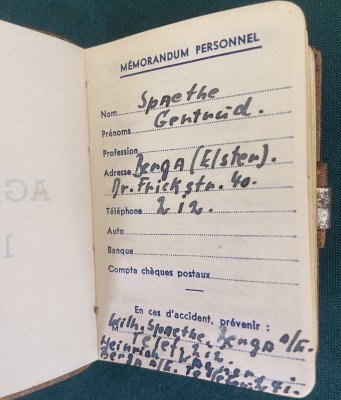 MÉMORANDUM PERSONNEL
Nom Spaethe
Prénoms Gertrud.
Profession
Adresse Berga (Elster).
Dr. Frickstr. 40.
Téléphone 212.
Auto
Banque
Compte chèques postaux
En cas d'accident, prévenir :
M Wilh. Spaethe, Berga a/E.
Telef. 212.
Heinrich
Berga a/E.
AG
1